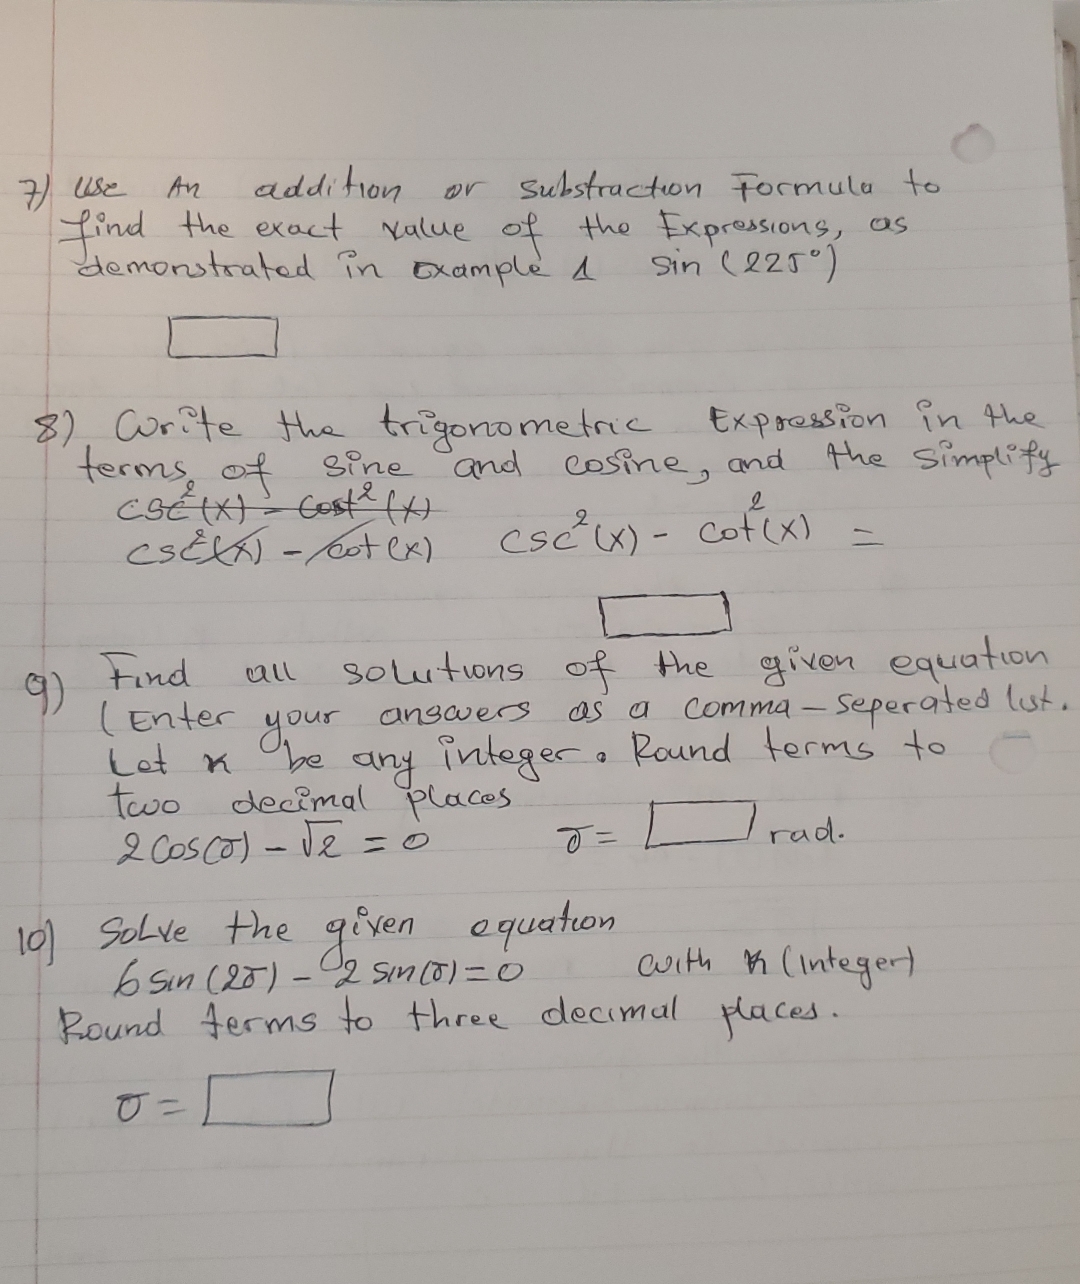 7) Use An addition or substraction Formula to
find the exact value of the Expressions, as
demonstrated in Example 1 sin (225°)
8) Write the trigonometric Expression in the
terms of sine and cosine, and the simplify
csc²(x) - cost²(x)
csc²(x) - cot(x) csc²(x) - cot²(x) =
9) Find all solutions of the given equation
(Enter your answers as a comma-seperated list.
Let k be any integer. Round terms to
two decimal places
2cos(σ) - √2 = 0 σ = rad.
10) Solve the given equation
6 sin (2σ) - 2 sin(σ) = 0 with k (integer)
Round terms to three decimal places.
σ =